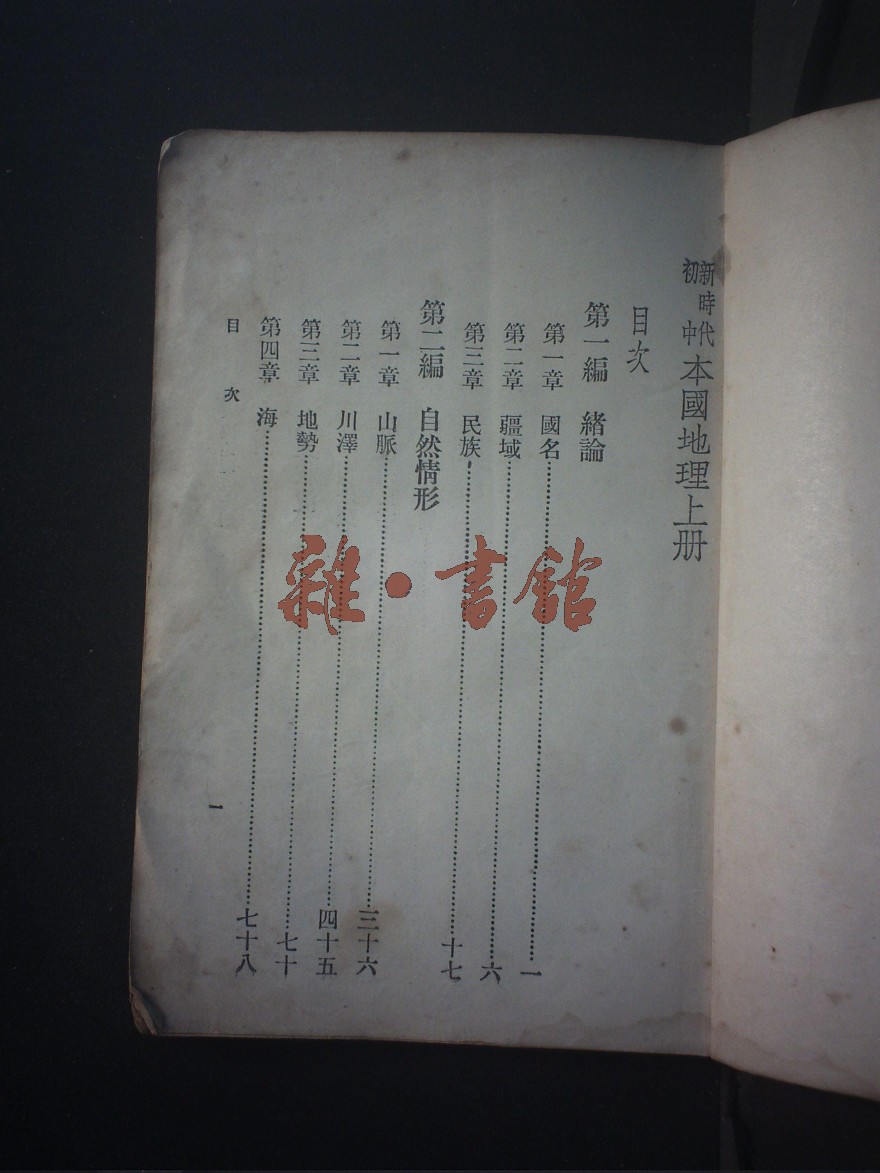 新時代初中本國地理上册
目次
第一編 緒論
第一章 國名……一
第二章 疆域……六
第三章 民族……十七
第二編 自然情形
第一章 山脈……三十六
第二章 川澤……四十五
第三章 地勢……七十
第四章 海……七十八
目次
一
雜·書館